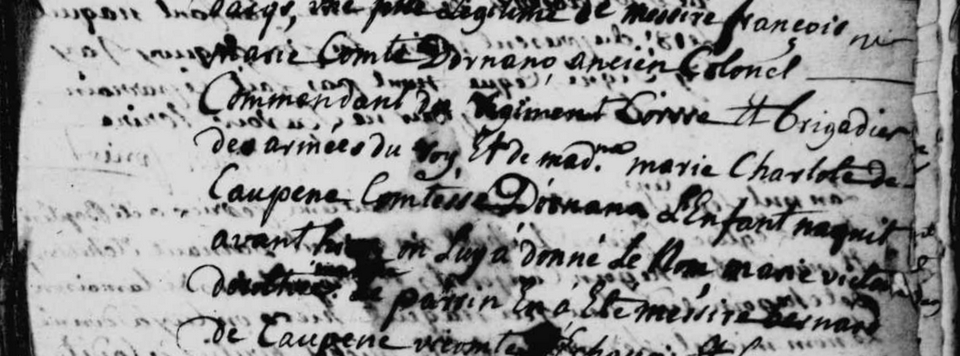 une fille Légitime de messire françois
marie Comte Dornano ancien Colonel
Commandant du Regiment Corsse Et brigadier
des armées du roy Et de mad.me marie Charlote de
Caupene Comtesse Dornana L'Enfant naquit
avant hier on Luy a donné Le Nom marie
Le parrin En a Eté messire bernard
de Caupene vicomte